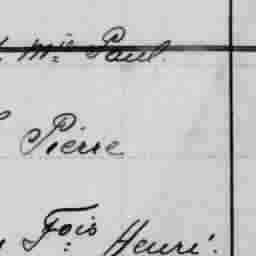 Mie Paul.
Pierre
Fois Henri.